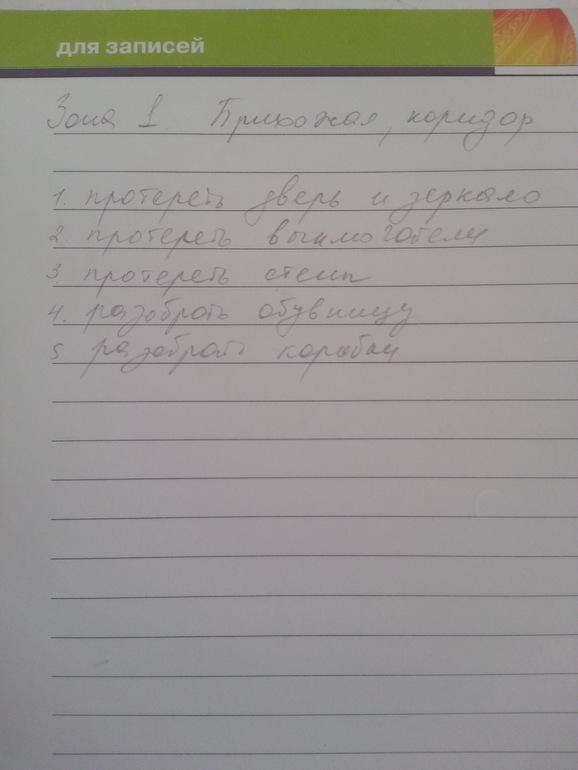 для записей
Зона 1. Прихожая, коридор
1. протереть дверь и зеркало
2 протереть
3. протереть стены
4. разобрать обувницу
5 разобрать коробки